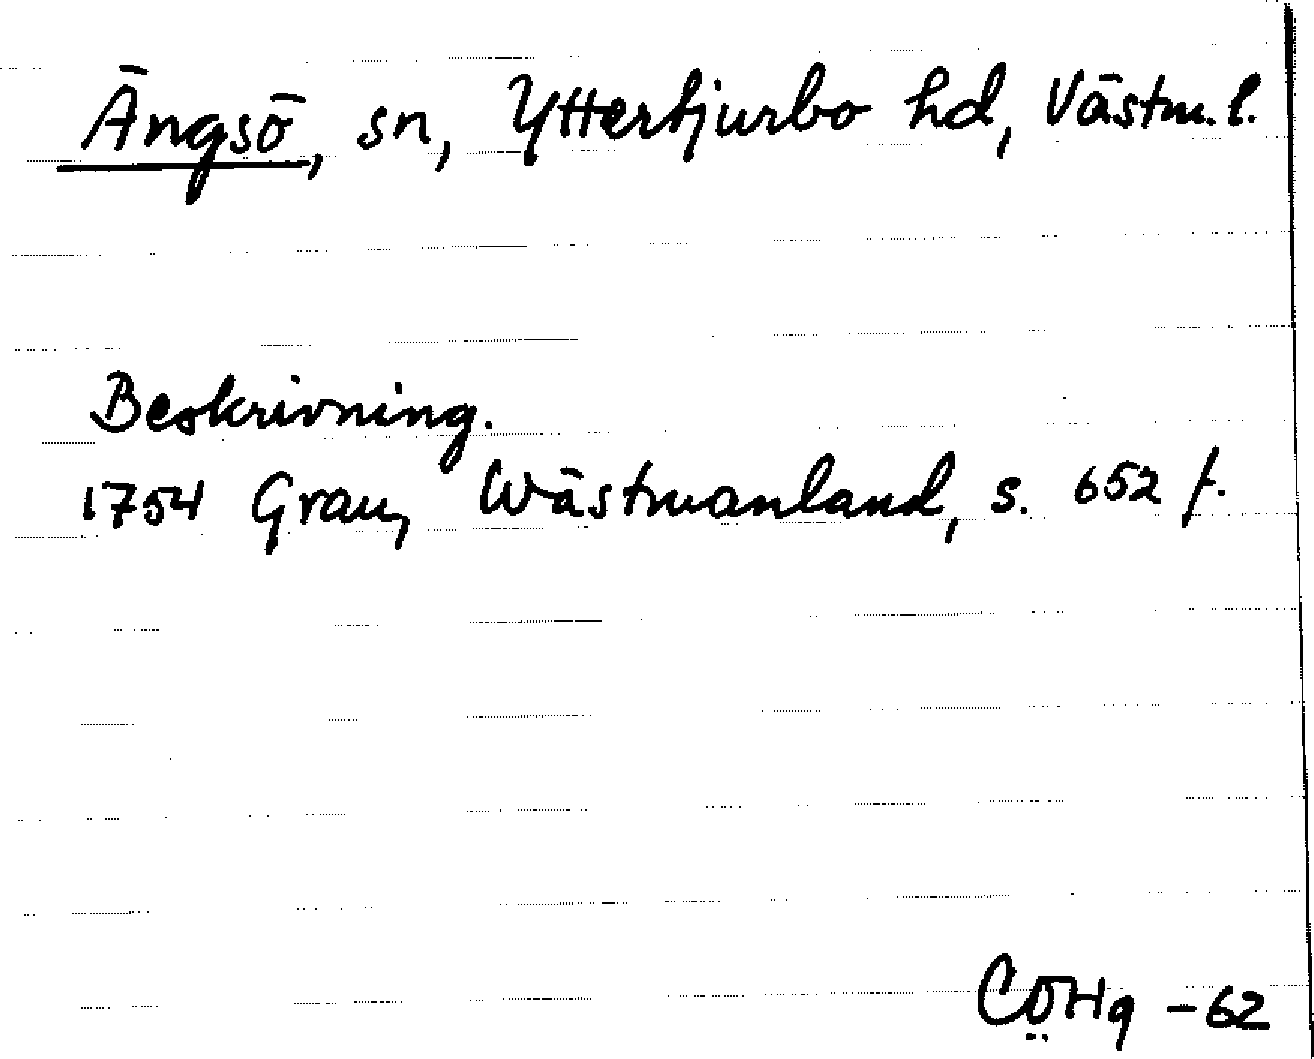 Ängsö, sn, Yttertjurbo hd, Västm. l.
Beskrivning.
1754 Grau, Wästmanland, s. 652 f.
CÖHg -62